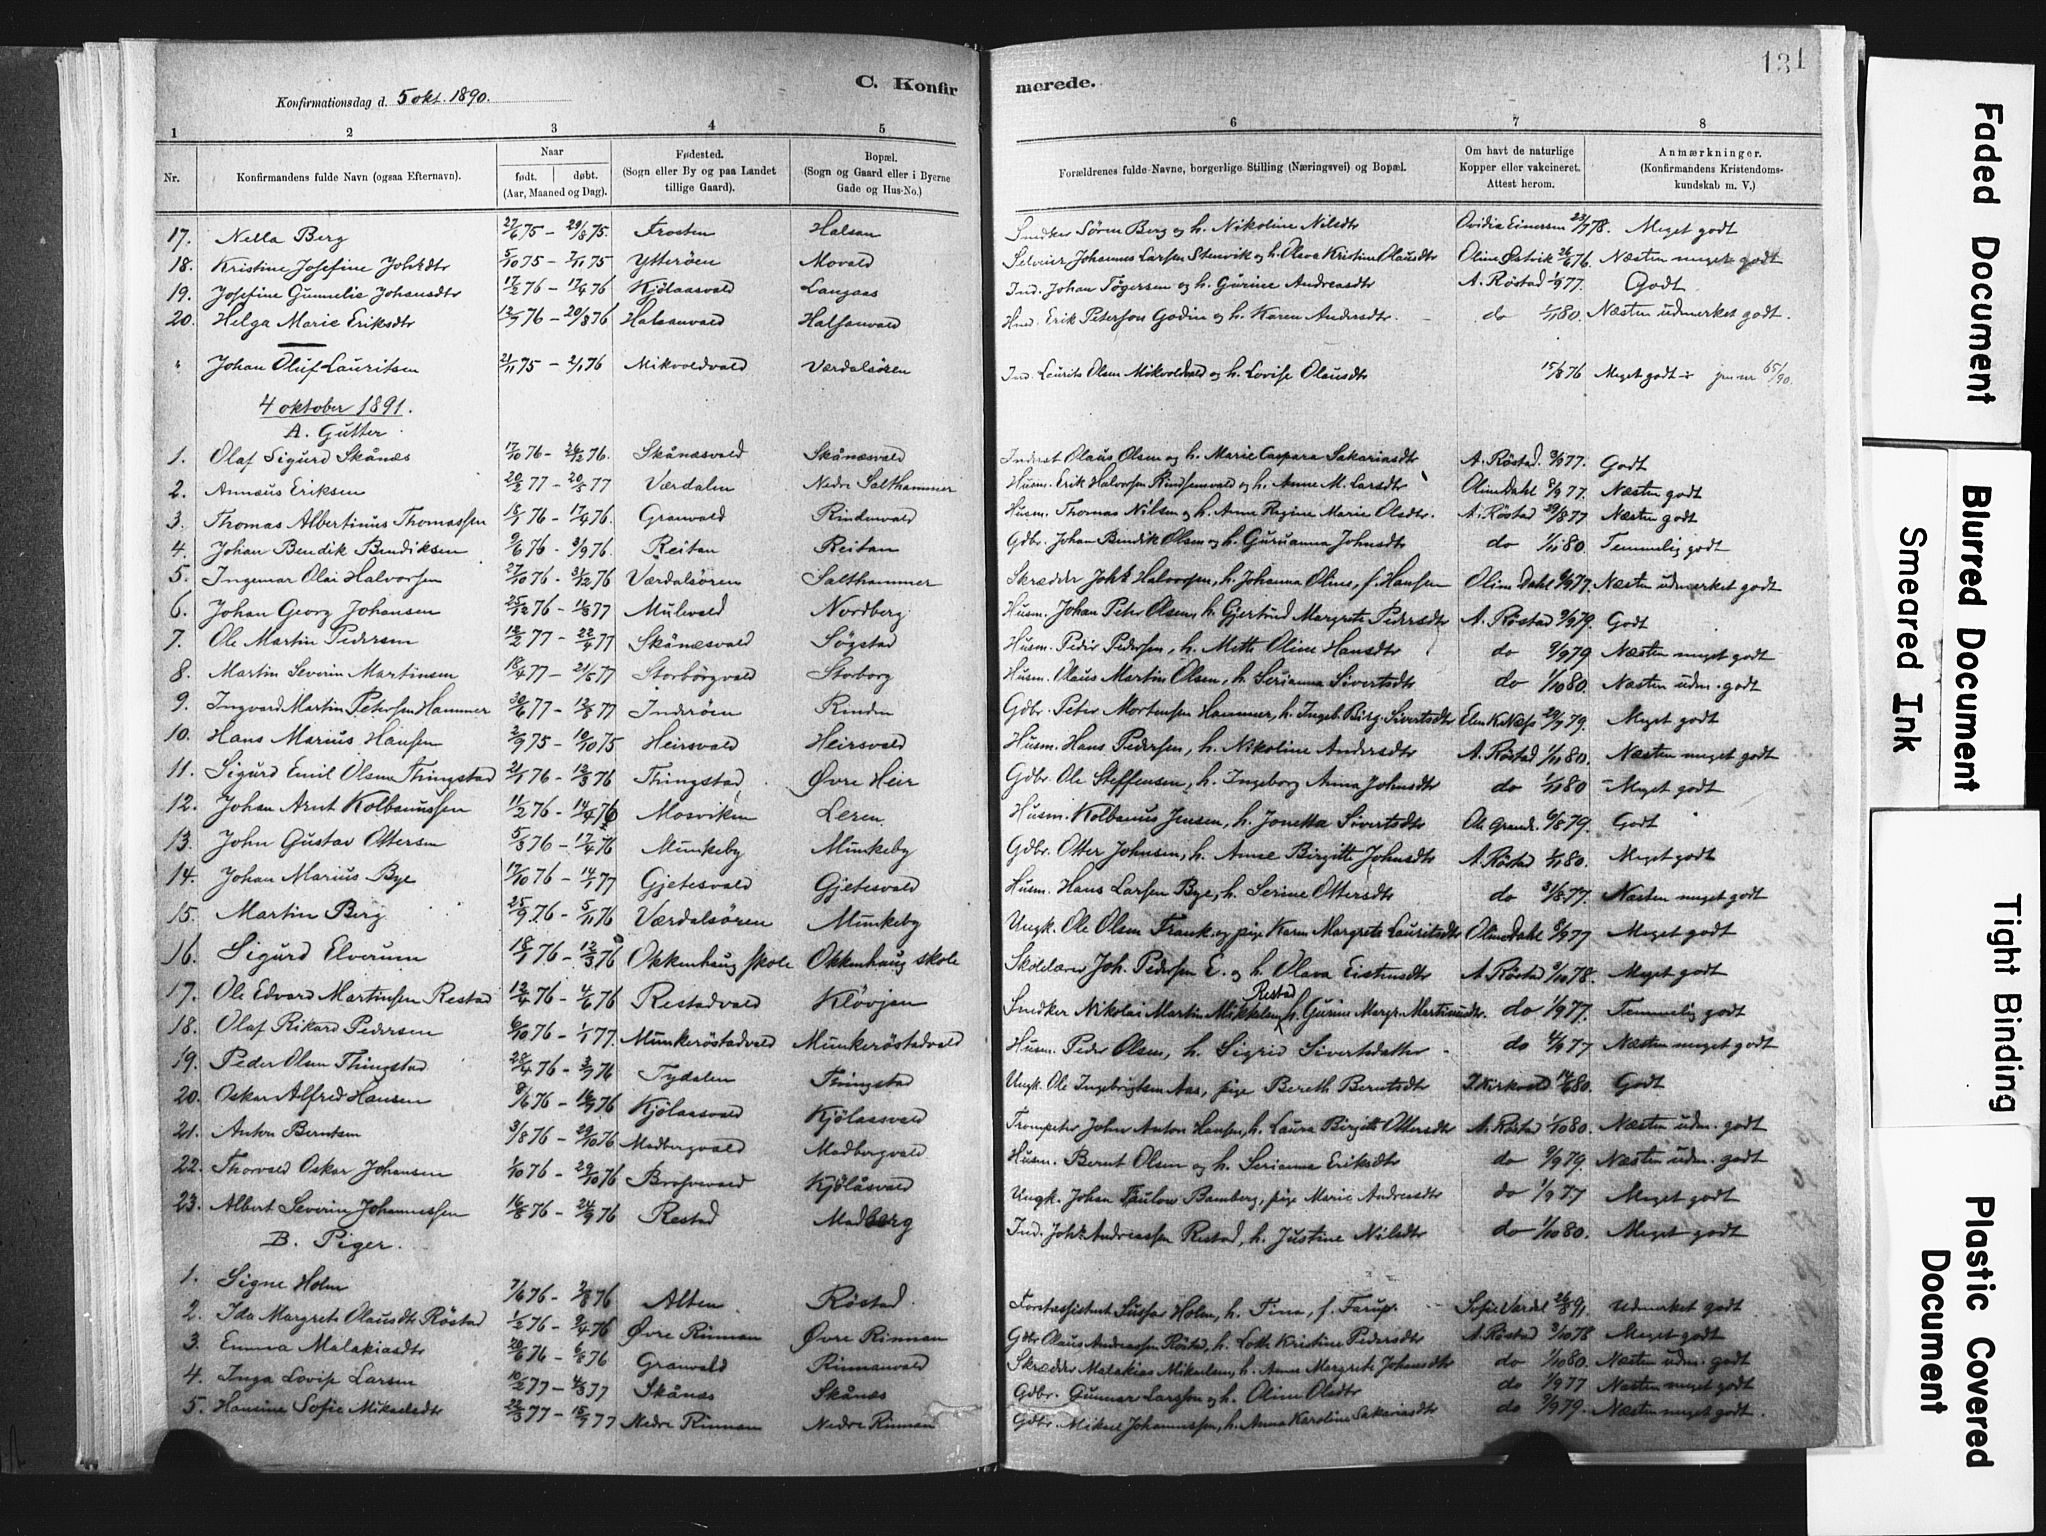 C. Konfirmerede.
131
Konfirmationsdag d. 5 okt. 1890.
1 2 3 4 5 6 7 8
Nr. Konfirmandens fulde Navn (ogsaa Efternavn). Naar født. døbt. (Aar, Maaned og Dag). Fødested. (Sogn eller By og paa Landet tillige Gaard). Bopæl. (Sogn og Gaard eller i Byerne Gade og Hus-No.) Forældrenes fulde Navne, borgerlige Stilling (Næringsvei) og Bopæl. Om havt de naturlige Kopper eller vakcineret. Attest herom. Anmærkninger. (Konfirmandens Kristendomskundskab m. V.)
17. Nella Berg 27/6 75 - 29/8 75. Frosten Halsan Snedker Sören Berg og h. Nikoline Nilsdtr Ovidia Einersen 23/7 78. Meget godt
18. Kristine Josefine Johsdtr 5/10 75 - 2/11 75 Ytterøen Movald Selveier Johannes Larsen Stenvik og h. Olava Kristine Olausdtr Oline Østvik 26/6 76. Næsten meget godt
19. Josefine Gunnelie Johansdtr 17/2 76 - 17/4 76 Kjölaasvald Langaas Ind. Johan Tögersen og h. Gurine Andreasdtr A. Röstad 1/9 77. Godt
20. Helga Marie Eriksdtr 12/7 76 - 20/8 76 Halsanvald Halsanvald Husm. Erik Peterson Godin og h. Karen Andersdtr. do 1/11 80. Næsten udmerket godt.
" Johan Oluf Lauritsen 21/11 75 - 2/1 76 Mikvoldvald Værdalsören Ind. Laurits Olsen Mikvoldvald og h. Lovise Olausdtr 15/8 76 Meget godt jrn nr 65/90.
4 oktober 1891.
A. Gutter.
1. Olaf Sigurd Skånes 17/10 76 - 26/12 76. Skånesvald Skånesvald Inderst Olaus Olsen og h. Marie Caspara Sakariasdtr A. Röstad. 3/9 77. Godt
2. Annæus Eriksen 20/2 77 - 20/5 77 Værdalen Nedre Salthammer Husm. Erik Halvorsen Rindsemvald og h. Anne M. Larsdtr Oline Dahl 8/9 77. Næsten godt
3. Thomas Albertinus Thomassen 18/1 76 - 17/4 76. Granvald Rindenvald Husm. Thomas Nilsen og h. Anne Regine Marie Olsdtr. A. Röstad 29/8 77 Næsten godt
4. Johan Bendik Bendiksen 9/6 76 - 3/9 76. Reitan Reitan Gdbr. Johan Bendik Olsen og h. Guruanna Johnsdtr do 1/11 80. Temmelig godt
5. Ingemar Olai Halvorsen 27/10 76 - 31/12 76 Værdalsören Salthammer Skrædder Johs Halvorsen, h. Johanna Oline, f. Hansen Oline Dahl 8/9 77. Næsten udmerket godt
6. Johan Georg Johansen 25/12 76 - 11/3 77 Mulevald Nordberg Husm. Johan Peter Olsen, h. Gjertrud Margrete Pedersdtr A. Röstad 9/9 79. Godt
7. Ole Martin Pedersen 12/2 77 - 22/4 77 Skånesvald Søgstad Husm. Peder Pedersen, h. Mette Oline Hansdtr do 9/9 79 Næsten meget godt
8. Martin Severin Martinsen 18/4 77 - 21/5 77 Storbörgvald Storborg Husm. Olaus Martin Olsen, h. Serianna Sivertsdtr do 1/10 80. Næsten udm. godt
9. Ingvard Martin Petersen Hammer 30/6 77 - 12/8 77 Inderöen Rinden Gdbr. Peter Mortensen Hammer, h. Ingeb. Birg. Sivertsdtr Elen K. Næss 29/7 79. Meget godt
10. Hans Marius Hansen 2/9 75 - 10/10 75 Heirsvald Heirsvald Husm. Hans Pedersen, h. Nikoline Andersdtr A. Röstad 1/11 80. Næsten meget godt
11. Sigurd Emil Olsen Thingstad 21/1 76 - 12/3 76 Thingstad Øvre Heir Gdbr. Ole Steffensen, h. Ingeborg Anna Johnsdtr do 1/11 80 - Meget godt
12. Johan Arnt Kolbanussen 11/2 76 - 14/4 76 Mosviken Leren Husm. Kolbanus Jensen, h. Jonetta Sivertsdtr Ole Grande. 6/8 79. Godt
13. John Gustav Ottersen 5/3 76 - 17/4 76 Munkeby Munkeby Gdbr. Otter Johnsen, h. Anne Birgitte Johnsdtr A. Röstad 1/11 80. Meget godt
14. Johan Marius Bye 17/10 76 - 14/1 77 Gjetesvald Gjetesvald Husm. Hans Larsen Bye, h. Serine Ottersdtr do 31/8 77. Næsten meget godt
15. Martin Berg 25/9 76 - 5/11 76 Værdalsören Munkeby Ungk. Ole Olsen Frank og pige Karen Margrete Lauritsdtr Oline Dahl 8/9 77 Meget godt
16. Sigurd Elverum 18/1 76 - 12/3 76 Okkenhaug skole Okkenhaug skole Skolelærer Joh. Pedersen E. og h. Olava Eistensdtr A. Röstad 3/10 78. Meget godt
17. Ole Edvard Martinsen Restad 12/4 76 - 4/6 76 Restadvald Klövjan Snedker Nikolai Martin Mikkelsen Restad h. Gurine Margr. Martinusdtr. do 1/9 77. Temmelig godt
18. Olaf Rikard Pedersen 6/10 76 - 1/1 77. Munkeröstadvald Munkeröstadvald Husm. Peder Olsen, h. Sigrid Sivertsdatter do 4/9 77 Næsten meget godt
19. Peder Olsen Thingstad 28/4 76 - 2/7 76 Tydalen Thingstad Ungk. Ole Ingebrigtsen Aas, pige Bereth Berntsdtr J. Kirkvold 14/6 80. Godt
20. Oskar Alfred Hansen 8/6 76 - 16/7 76 Kjölaasvald Kjölaasvald Trompeter John Anton Hansen, h. Laura Birgitte Ottersdtr A. Röstad 1/10 80. Næsten udm. godt
21. Anton Berntsen 3/8 76 - 29/10 76 Madbergvald Madbergvald Husm. Bernt Olsen og h. Serianna Eriksdtr do 9/9 79. Næsten udm. godt
22. Thorvald Oskar Johansen 1/10 76 - 29/10 76 Brosvevald Kjölåsvald Ungk. Johan Paulow Bamberg, pige Marie Andreasdtr do 1/9 77 Meget godt
23. Albert Severin Johannessen 16/8 76 - 24/9 76 Restad Madberg Ind. Johs Andreassen Restad, h. Justine Nilsdtr do 1/10 80. Meget godt
B. Piger.
1. Signe Holm 7/6 76 - 2/8 76 Alten Röstad. Forstassistent Holm, h. Tina, f. Farup. Sofie Vardal 26/8 91. Udmerket godt
2. Ida Margrete Olausdtr Röstad 1/2 76 - 2/4 76 Øvre Rinnan Øvre Rinnan Gdbr Olaus Andreassen Röstad, h. Lotte Kristine Pedersdtr A. Röstad 3/10 78 Meget godt
3. Emma Malakiasdtr 20/6 76 - 6/8 76 Granvald Rinnanvald Skrædder Malakias Mikaelsen, h. Anne Margrete Johansdtr do 1/10 80. Næsten udm. godt
4. Inga Lovise Larsen 10/2 77 - 4/3 77 Skånes Skånes Gdbr. Gunnar Larsson og h. Oline Olsdtr do 1/9 77 Næsten meget godt
5. Hansine Sofie Mikaelsdtr 22/3 77 - 15/7 77 Nedre Rinnan Nedre Rinnan Gdbr. Mikael Johannessen, h. Anna Karoline Sakariasdtr do 9/9 79. Næsten meget godt.
Faded Document
Blurred Document
Smeared Ink
Tight Binding
Plastic Covered
Document